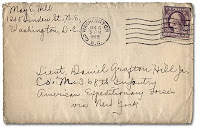 May E. Hill
Washington, D.C.
WASHINGTON
D.C.
Lieut. Daniel Grafton Hill Jr.
Co. M 368th Infantry
American Expeditionary Forces
via New York